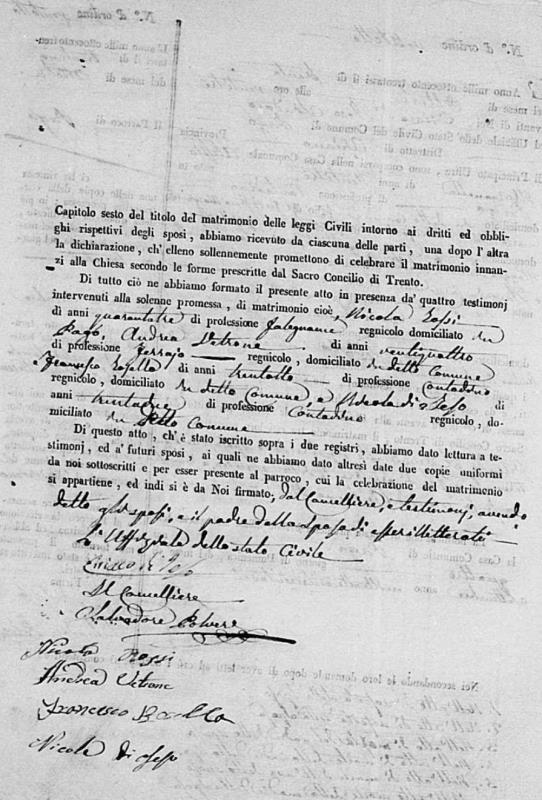 Capitolo sesto del titolo del matrimonio delle leggi Civili intorno ai dritti ed obbli-
ghi rispettivi degli sposi, abbiamo ricevuto da ciascuna delle parti, una dopo l'altra
la dichiarazione, ch'elleno sollennemente promettono di celebrare il matrimonio innan-
zi alla Chiesa secondo le forme prescritte dal Sacro Concilio di Trento.
Di tutto ciò ne abbiamo formato il presente atto in presenza da' quattro testimonj
intervenuti alla solenne promessa, di matrimonio cioè, Nicola Rossi
di anni quarantatre di professione falegname regnicolo domiciliato in
Pago, Andrea Vetrone di anni ventiquattro
di professione ferrajo regnicolo, domiciliato in detto Comune
Francesco di anni trentotto di professione Contadino
regnicolo, domiciliato in detto Comune, e Nicola di di
anni trentadue di professione Contadino regnicolo, do-
miciliato in detto Comune
Di questo atto, ch'è stato iscritto sopra i due registri, abbiamo dato lettura a te-
stimonj, ed a' futuri sposi, ai quali ne abbiamo dato altresì date due copie uniformi
da noi sottoscritti e per esser presente al parroco, cui la celebrazione del matrimonio
si appartiene, ed indi si è da Noi firmato, dal Cancelliere, e testimonj, avendo
detto gli sposi, e il padre della sposa di essere illetterati
L'Uffiziale dello stato Civile
Il Cancelliere
Salvadore Polvere
Nicola Rossi
Andrea Vetrone
Francesco
Nicola di